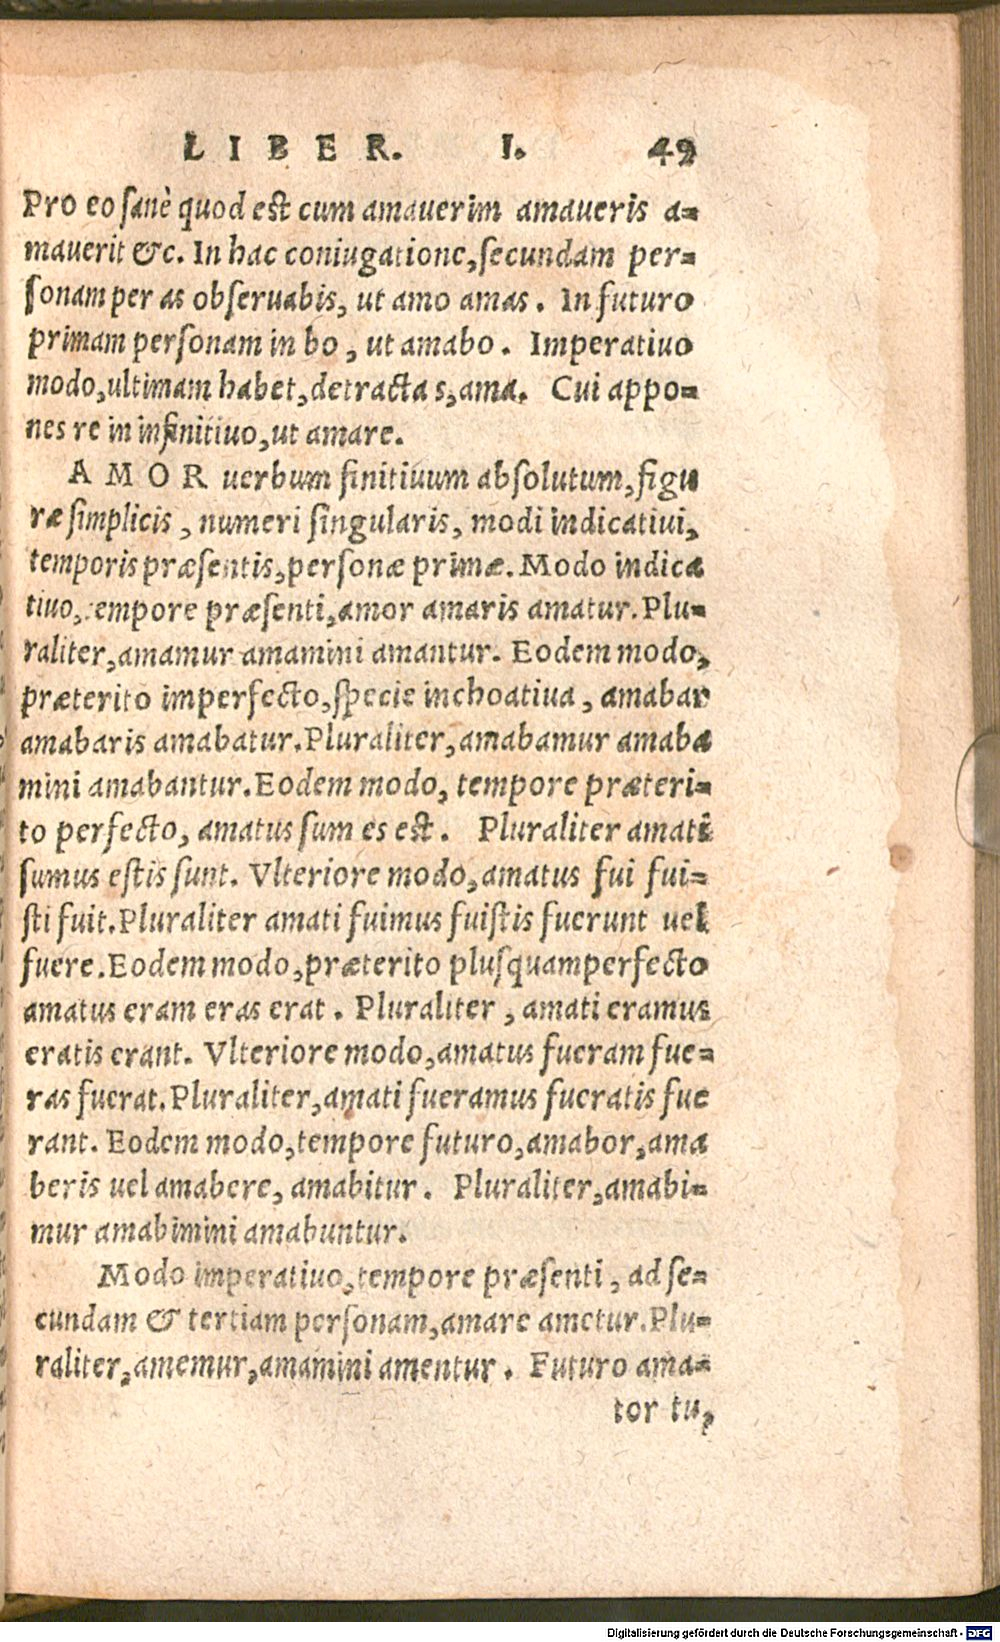 LIBER. I. 49
Pro eo sanè quod est cum amauerim amaueris a-
mauerit &c. In hac coniugatione, secundam per-
sonam per as obseruabis, ut amo amas. In futuro
primam personam in bo, ut amabo. Imperatiuo
modo, ultimam habet, detracta s, ama. Cui appo-
nes re in infinitiuo, ut amare.
AMOR uerbum finitiuum absolutum, figu
ræ simplicis, numeri singularis, modi indicatiui,
temporis præsentis, personæ primæ. Modo indica
tiuo, tempore præsenti, amor amaris amatur. Plu-
raliter, amamur amamini amantur. Eodem modo,
præterito imperfecto, specie inchoatiua, amabar
amabaris amabatur. Pluraliter, amabamur amaba
mini amabantur. Eodem modo, tempore præteri-
to perfecto, amatus sum es est. Pluraliter amati
sumus estis sunt. Vlteriore modo, amatus fui fui-
sti fuit. Pluraliter amati fuimus fuistis fuerunt uel
fuere. Eodem modo, præterito plusquamperfecto
amatus eram eras erat. Pluraliter, amati eramus
eratis erant. Vlteriore modo, amatus fueram fue-
ras fuerat. Pluraliter, amati fueramus fueratis fue
rant. Eodem modo, tempore futuro, amabor, ama
beris uel amabere, amabitur. Pluraliter, amabi-
mur amabimini amabuntur.
Modo imperatiuo, tempore præsenti, ad se-
cundam & tertiam personam, amare ametur. Plu-
raliter, amemur, amamini amentur. Futuro ama-
tor tu,
Digitalisierung gefördert durch die Deutsche Forschungsgemeinschaft - DFG